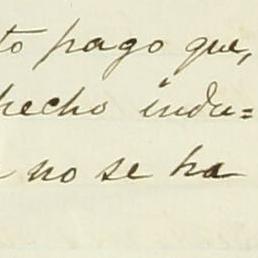 to pago que,
hecho indu=
no se ha